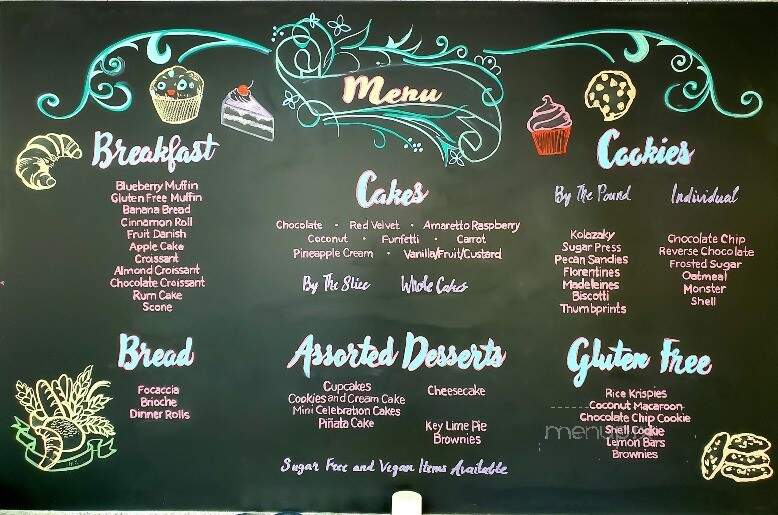 Menu
Breakfast
Blueberry Muffin
Gluten Free Muffin
Banana Bread
Cinnamon Roll
Fruit Danish
Apple Cake
Croissant
Almond Croissant
Chocolate Croissant
Rum Cake
Scone
Cakes
Chocolate · Red Velvet · Amaretto Raspberry
Coconut · Funfetti · Carrot
Pineapple Cream · Vanilla/Fruit/Custard
By The Slice Whole Cakes
Cookies
By The Pound
Kolazaky
Sugar Press
Pecan Sandies
Florentines
Madeleines
Biscotti
Thumbprints
Individual
Chocolate Chip
Reverse Chocolate
Frosted Sugar
Oatmeal
Monster
Shell
Bread
Focaccia
Brioche
Dinner Rolls
Assorted Desserts
Cupcakes
Cookies and Cream Cake
Mini Celebration Cakes
Piñata Cake
Cheesecake
Key Lime Pie
Brownies
Gluten Free
Rice Krispies
Coconut Macaroon
Chocolate Chip Cookie
Shell Cookie
Lemon Bars
Brownies
Sugar Free and Vegan Items Available